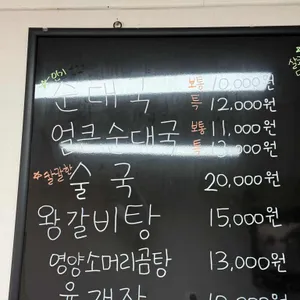 순대국 보통 10,000원
특 12,000원
얼큰순대국 보통 11,000원
특 13,000원
☆칼칼한
술국 20,000원
왕갈비탕 15,000원
영양소머리곰탕 13,000원
육개장